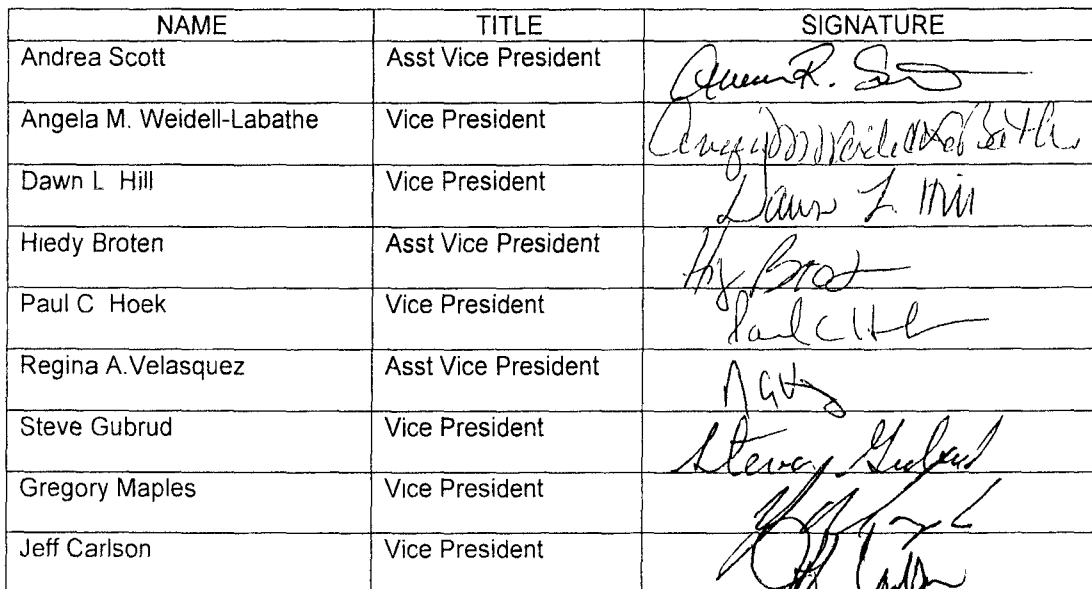 NAME TITLE SIGNATURE
Andrea Scott Asst Vice President
Angela M. Weidell-Labathe Vice President
Dawn L Hill Vice President Dawn L. Hill
Hiedy Broten Asst Vice President
Paul C Hoek Vice President Paul C
Regina A.Velasquez Asst Vice President
Steve Gubrud Vice President Gubrud
Gregory Maples Vice President
Jeff Carlson Vice President